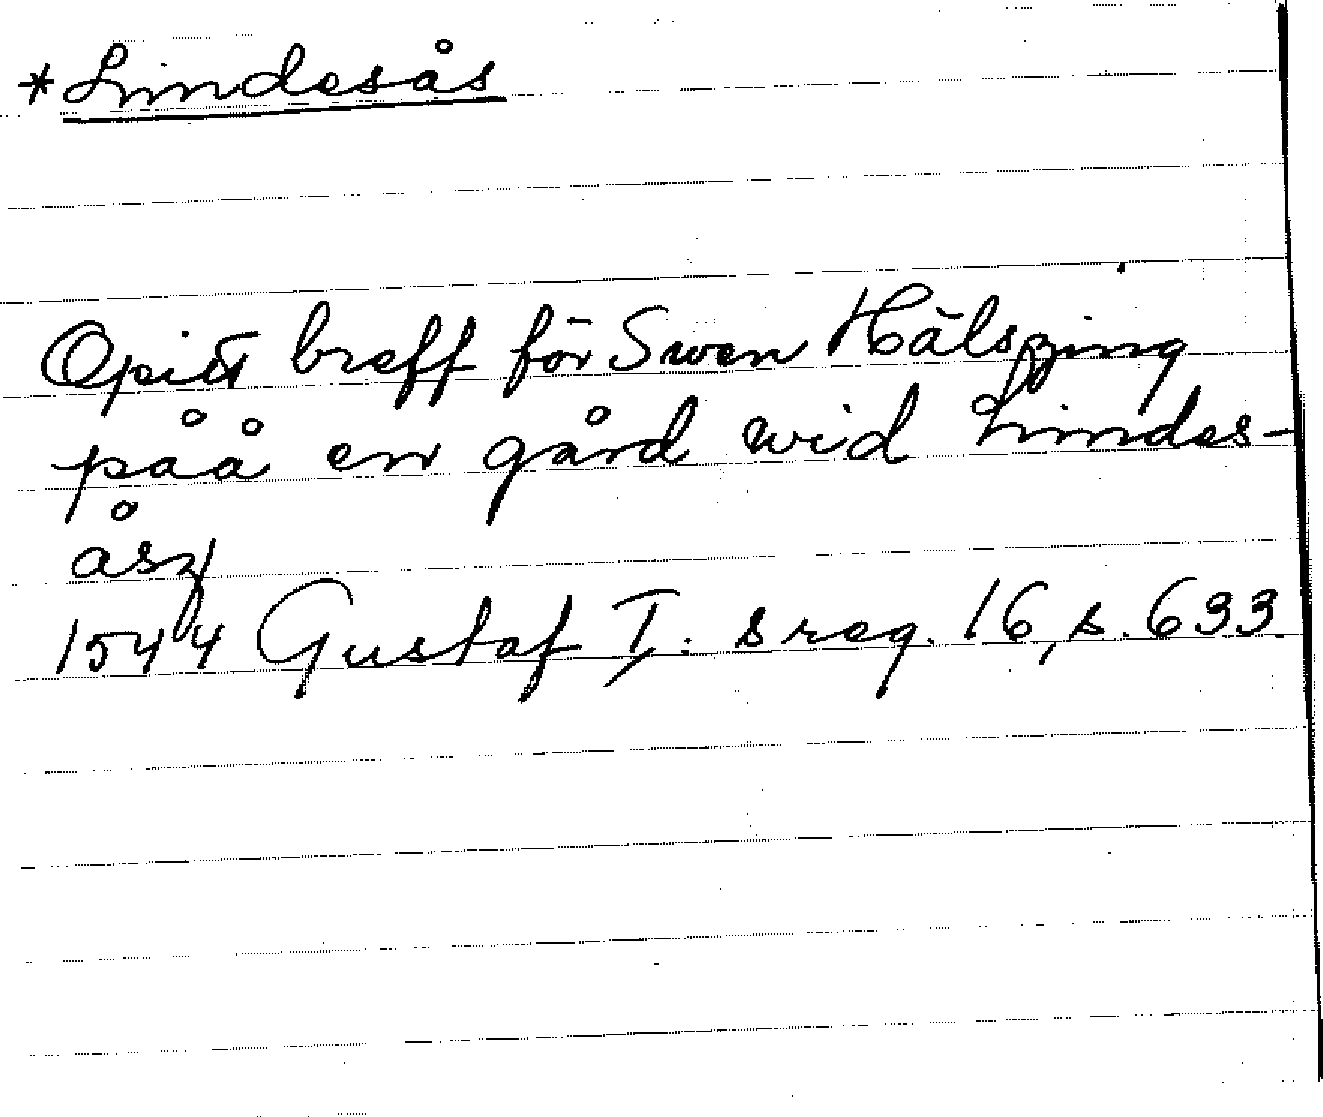 *Lindesås
Opitt breff för Swen Hälszing
påå en gård wid Lindes-
åsz
1544 Gustaf I: s reg. 16, s. 633.